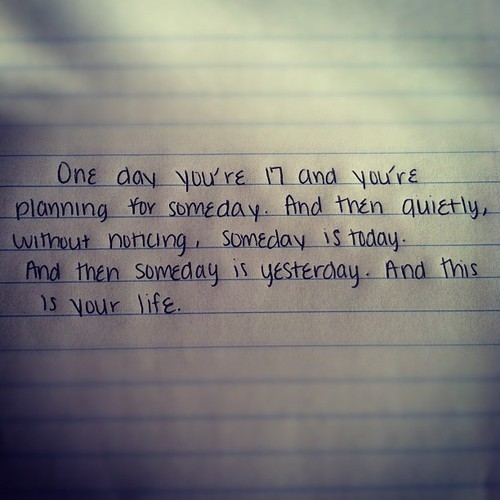 One day you're 17 and you're
planning for someday. And then quietly,
without noticing, someday is today.
And then someday is yesterday. And this
is your life.